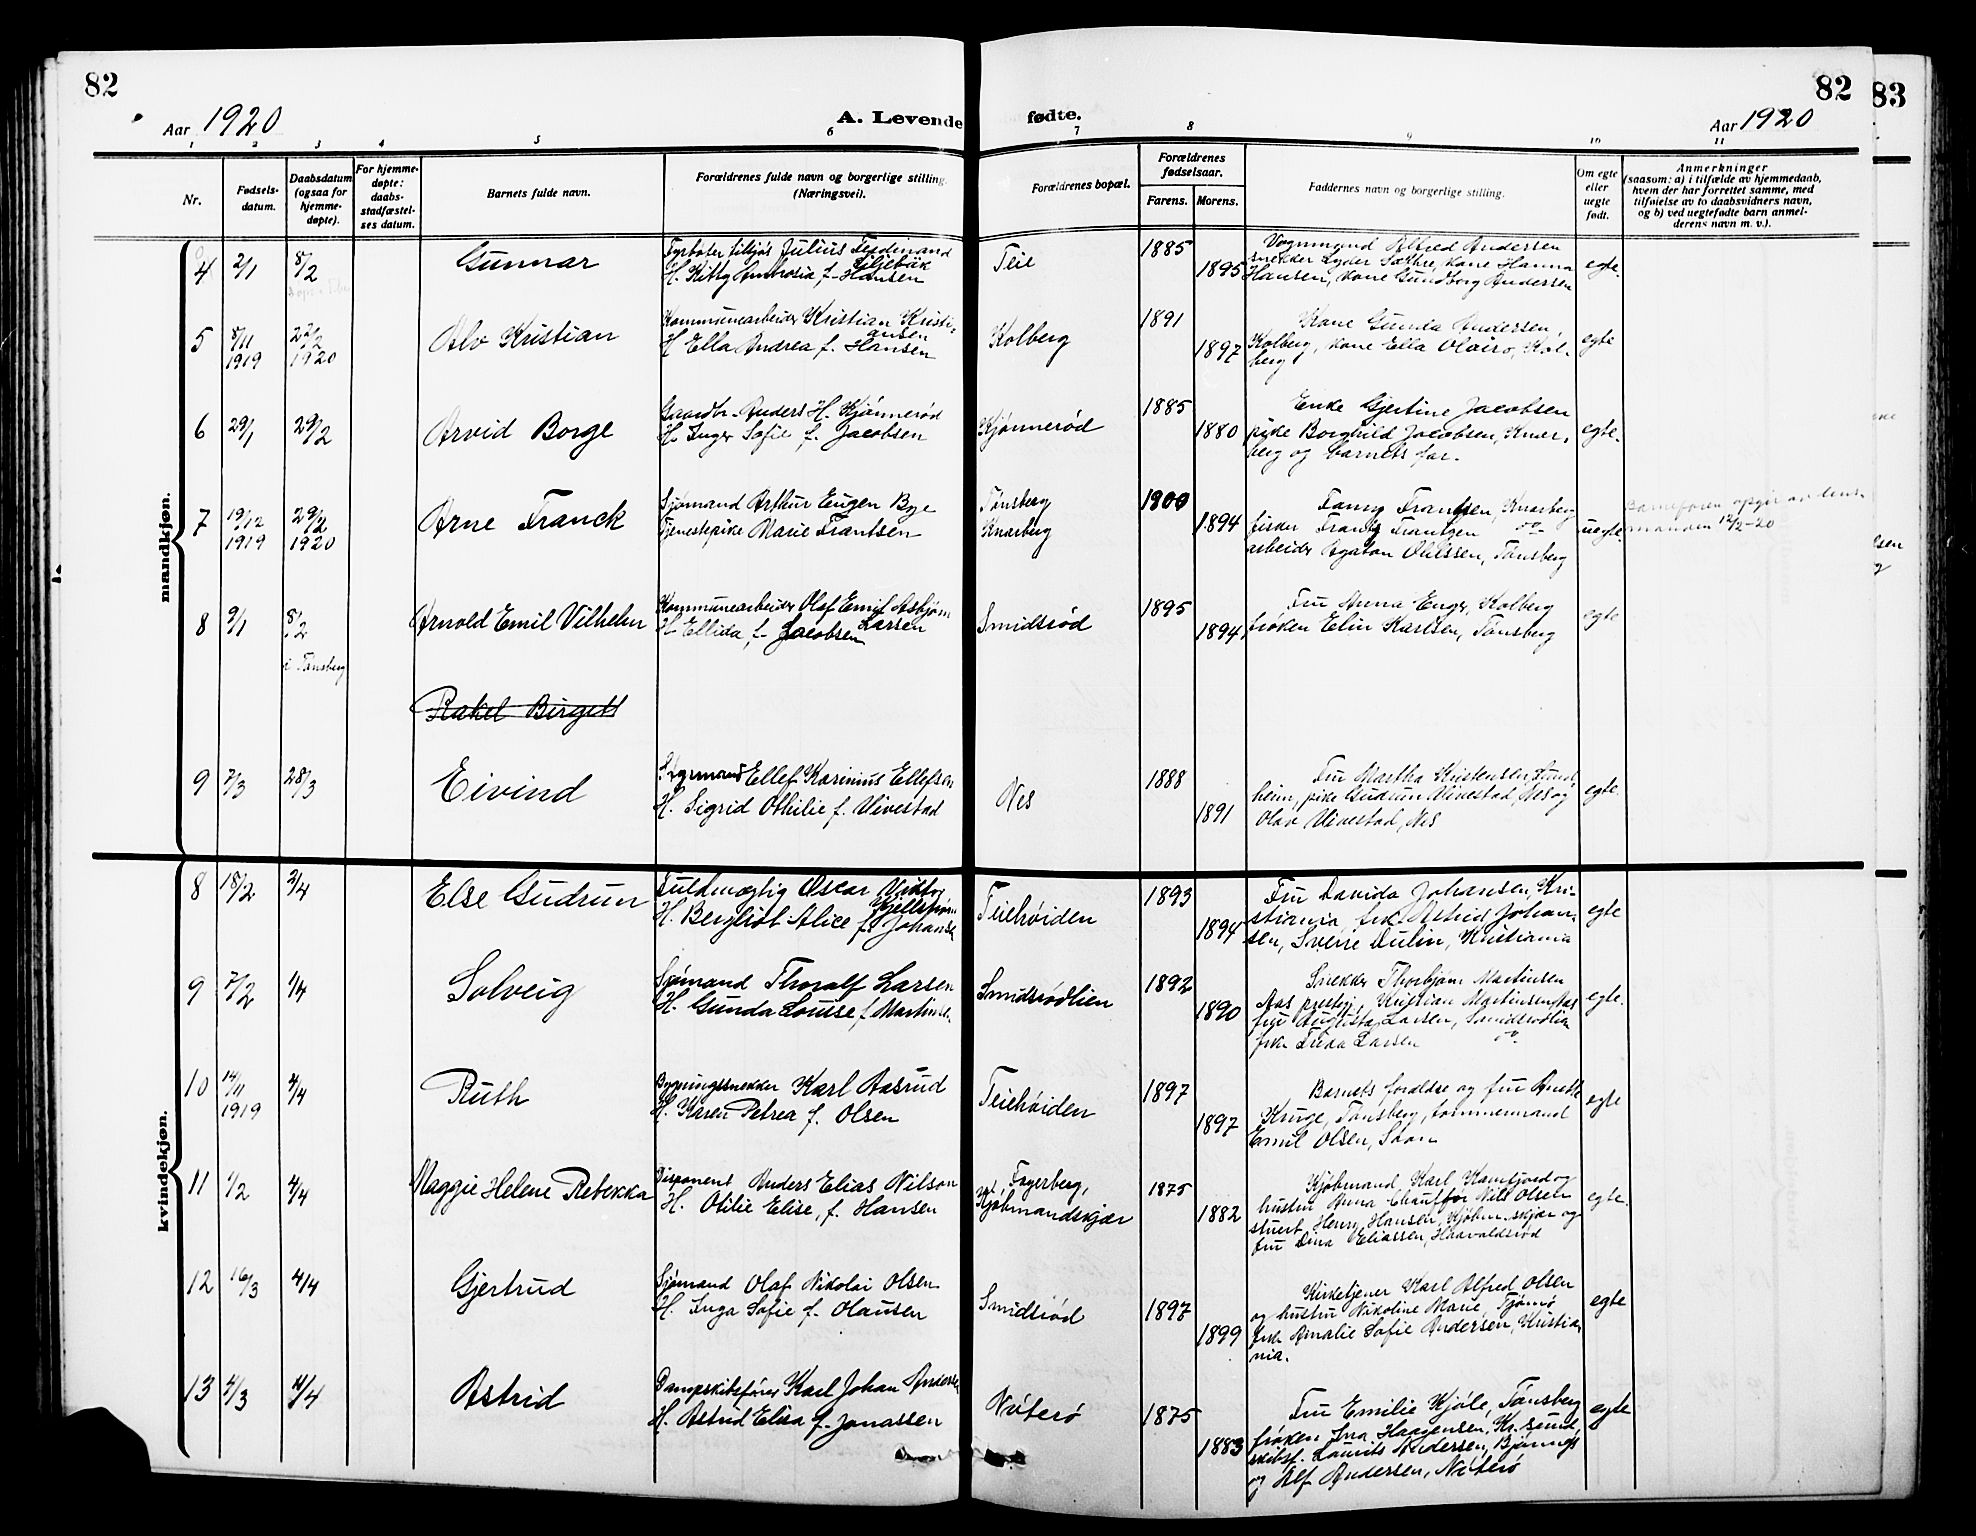 82
82
83
Aar 1920
A. Levende fødte.
Aar 1920
1 2 3 4 5 6 7 8 9 10 11
Nr.
Fødsels-
datum.
Daabsdatum
(ogsaa for
hjemme-
døpte).
For hjemme-
døpte:
daabs-
stadfæstel-
ses datum.
Barnets fulde navn.
Forældrenes fulde navn og borgerlige stilling.
(Næringsvei).
Forældrenes bopæl.
Forældrenes
fødselsaar.
Farens. Morens.
Faddernes navn og borgerlige stilling.
Om egte
eller
uegte
født.
Anmerkninger
(saasom: a) i tilfælde av hjemmedaab,
hvem der har forrettet samme, med
tilføielse av to daabsvidners navn,
og b) ved uegtefødte barn anmel-
derens navn m. v.).
mandkjøn.
4 2/1 8/2 Gunnar
Julius Ferdinand
Liljebäk
H. Kitty Ambrosia f. Hansen
Teie 1885 1895
Vognmand Alfred Andersen
snekker Lyder Sæthre, kone Hanna
Hansen, kone Gundborg Andersen
egte.
5 8/11 1919 22/2 1920 Alv Kristian
Kommunearbeider Kristian Kristi-
ansen
H. Ella Andrea f. Hansen
Kolberg 1891 1897
Kone Gunda Andersen,
Kolberg, kone Ella Kol-
berg
egte
6 29/1 29/2 Arvid Borge
Gaardbr. Anders H. Kjønnerød
H. Inger Sofie f. Jacobsen
Kjønnerød 1885 1880
Enke Gjertine Jacobsen
pike Borghild Jacobsen, Knar-
berg og barnets far.
egte.
7 19/12 1919 29/2 1920 Arne Franck
Sjømand Arthur Eugen Bye
Tjenestepike Marie Frantsen
Tønsberg
Knarberg
1900 1894
Fanny Frantsen, Knarberg
fisker Frantz Frantzen
arbeider Agaton Olilssen, Tønsberg
uegte.
Barnefaren opgir av lens-
manden 12/2-20
8 9/1 8/2 Arnold Emil Vilhelm
i Tønsberg
Kommunearbeider Olaf Emil Asbjørn
Larsen
H. Ellida f. Jacobsen
Smidsrød 1895 1894
Fru Anna Enger, Kolberg
frøken Elin Karlsen, Tønsberg
egte
Rakel Birgett
9 7/3 28/3 Eivind
Ellef Karinius Ellefsen
H. Sigrid Othilie f. Ulvestad
Nes 1888 1891
Fru Martha Kristensen, Lund
heim, pike Gudrun Ulvestad, Nes og
Olav Ulvestad, Nes
egte.
kvindekjøn.
8 18/2 3/4 Else Gudrun
Fuldmægtig Oscar Viktor
Kjellstrøm
H. Bergliot Alice f. Johansen
Teiehøiden 1893 1894
Fru Davida Johansen, Kri-
stiania, frk. Astrid Johan-
sen, Sverre Dulin, Kristiania
egte
9 7/2 1/4 Solveig
Sjømand Thoralf Larsen
H. Gunda Louise f. Martinse-
Smidsrødlien 1892 1890
Snekker Thorbjørn Martinsen
Aas Kristian Martinsen Aas
fru Augusta Larsen, Smidsrødlien
frk. Frida Larsen
egte.
10 14/11 1919 4/4 Ruth
Bygningssnekker Karl Aasrud
H. Karen Petrea f. Olsen
Teiehøiden 1897 1897
Barnets forældre og fru
Kruge, Tønsberg, tømmermand
Emil Olsen, Soon
egte
11 1/2 4/4 Maggie Helene Rebekka
Disponent Anders Elias Nilson
H. Otilie Elise, f. Hansen
Fagerberg,
Kjøbmandskjær
1875 1882
Kjøbmand Karl Kamfjord og
hustru Anna Chauffør Nils Olsen
stuert Henry Hansen, Kjøbm.skjær og
fru Dina Eliassen, Haavaldsrød
egte.
12 16/3 4/4 Gjertrud
Sjømand Olaf Nikolai Olsen
H. Inga Sofie f. Olausen
Smidsrød 1897 1899
Kirketjener Karl Alfred Olsen
og hustru Nikoline Marie, Tjømø
frk. Amalie Sofie Andersen, Kristia-
nia.
egte
13 4/3 4/4 Astrid
Dampskibsfører Karl Johan Anderse
H. Astrid Elisa f. Jonassen
Nøterø 1875 1883
Fru Emilie Kjøle, Tønsberg
frøken Ina Haagensen, Kr.sund,
skibsf. Laurits Andersen, Bjønnes
og Alf Andersen, Nøterø
egte